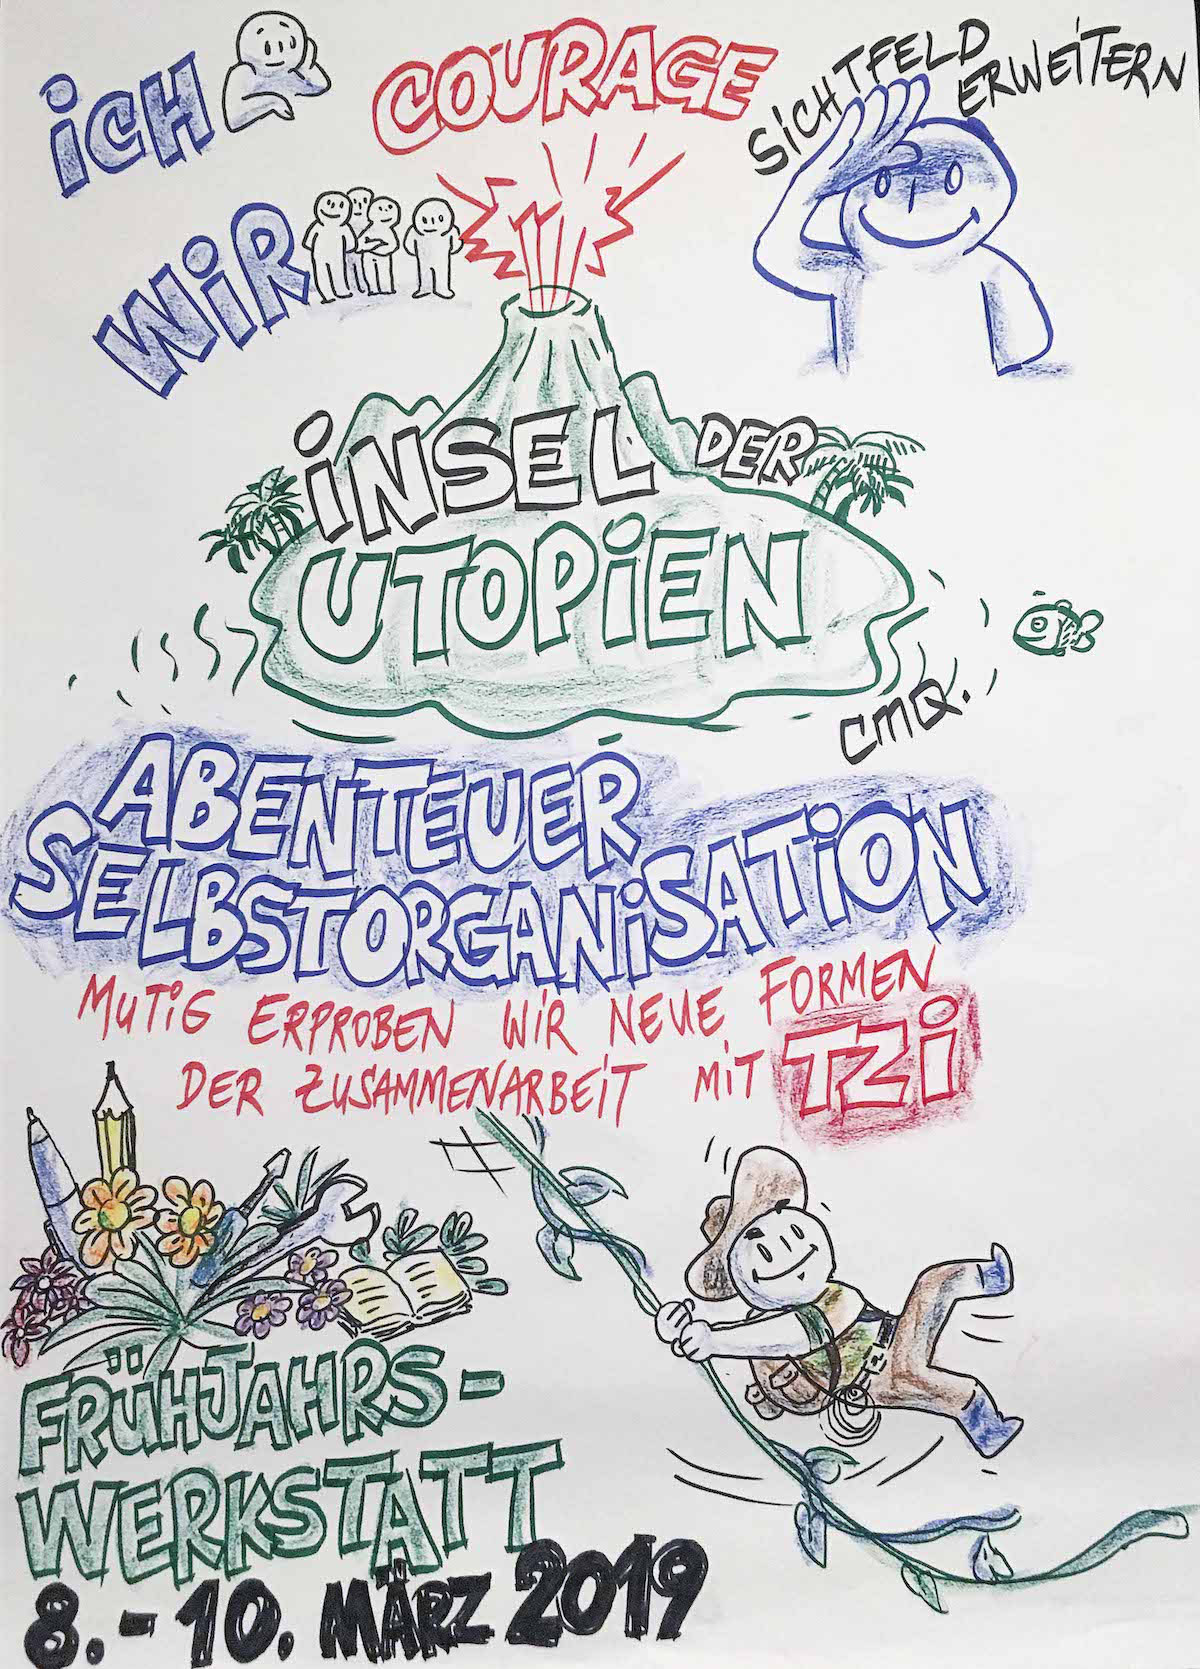 iCH
COURAGE
SiCHTFELD
ERWEiTERN
WiR
iNSEL DER
UTOPiEN
CMQ.
ABENTEUER
SELBSTORGANiSATiON
MUTiG ERPROBEN WiR NEUE FORMEN
DER ZUSAMMENARBEiT MiT TZi
FRÜHJAHRS-
WERKSTATT
8.-10. MÄRZ 2019